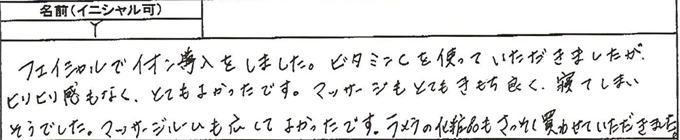 名前(イニシャル可)
Y
フェイシャルでイオン導入をしました。ビタミンCを使っていただきましたが、
ピリピリ感もなく、とてもよかったです。マッサージもとてもきもち良く、寝てしまい
そうでした。マッサージルームも広くてよかったです。ラメラの化粧品もさっそく買わせていただきました